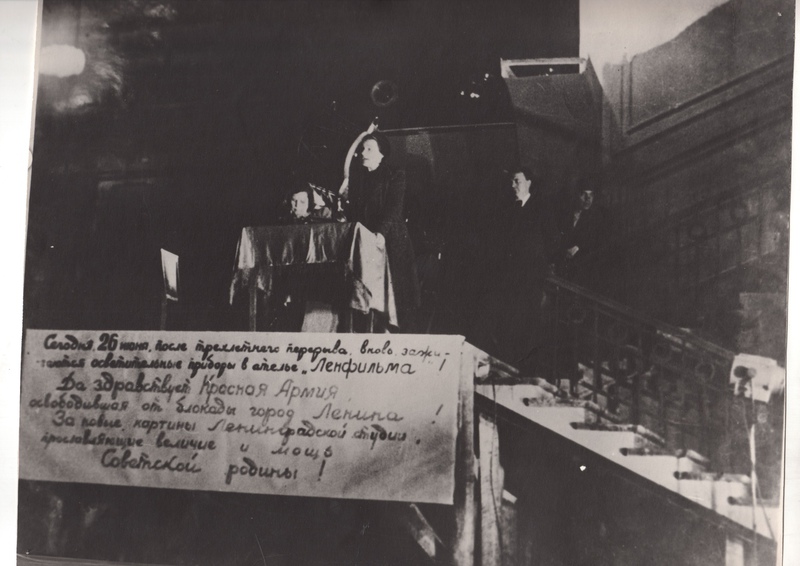 Сегодня, 26 июня, после трехлетнего перерыва, вновь зажи-
гаются осветительные приборы в ателье „Ленфильма"!
Да здравствует Красная Армия,
освободившая от блокады город Ленина!
За новые картины Ленинградской студии,
прославляющие величие и мощь
Советской родины!